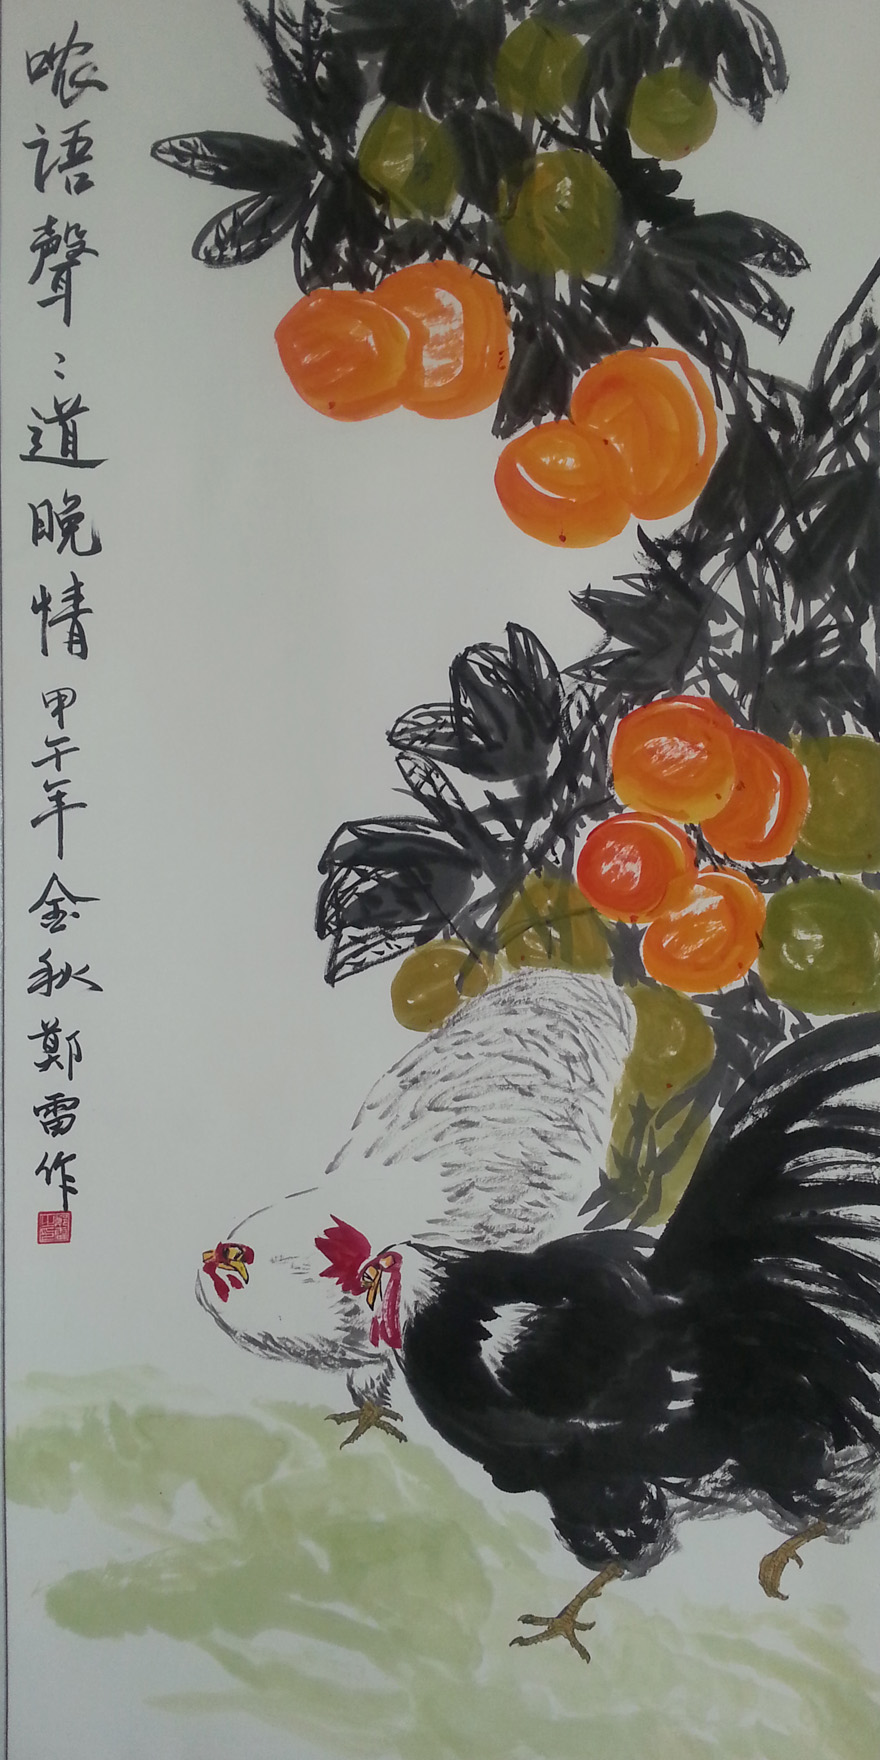 哝语聲〻道晚情甲午年金秋鄭雷作